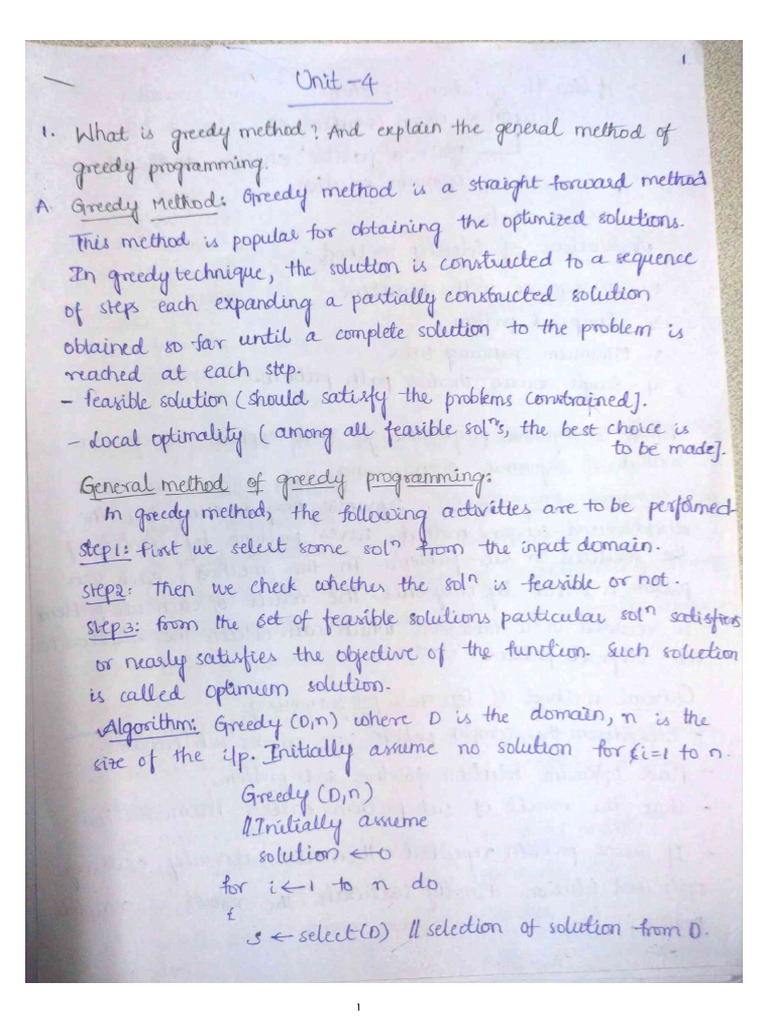 1
Unit -4
1. What is greedy method? And explain the general method of
greedy programming.
A. Greedy Method: Greedy method is a straight forward method
This method is popular for obtaining the optimized solutions.
In greedy technique, the solution is constructed to a sequence
of steps each expanding a partially constructed solution
obtained so far until a complete solution to the problem is
reached at each step.
- feasible solution (should satisfy the problems constrained].
- Local optimality (among all feasible solⁿs, the best choice is
to be made].
General method of greedy programming:
In greedy method, the following activities are to be performed
Step1: First we select some solⁿ from the input domain.
Step2: then we check whether the solⁿ is feasible or not.
Step3: from the set of feasible solutions particular solⁿ satisfies
or nearly satisfies the objective of the function. Such solution
is called optimum solution.
Algorithm: Greedy (D,n) where D is the domain, n is the
size of the i/p. Initially assume no solution for i=1 to n.
Greedy (D,n)
//Initially assume
solution ← 0
for i ← 1 to n do
{
s ← select(D) // selection of solution from D.
1